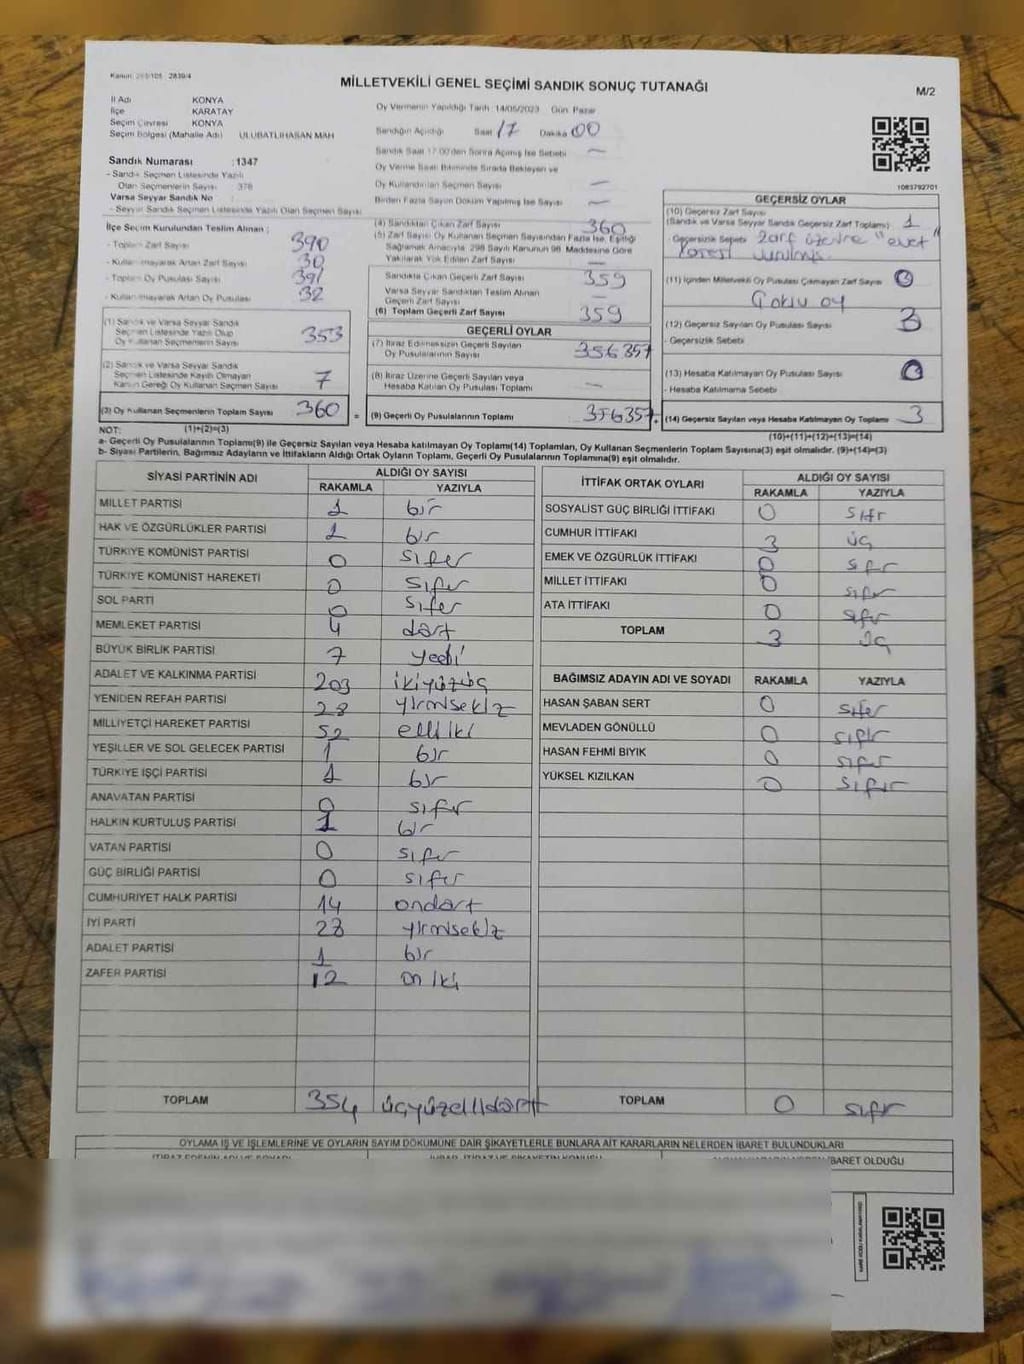 Kanun: 298/105 2839/4
MİLLETVEKİLİ GENEL SEÇİMİ SANDIK SONUÇ TUTANAĞI
M/2
İl Adı KONYA
İlçe KARATAY
Seçim Çevresi KONYA
Seçim Bölgesi (Mahalle Adı) ULUBATLIHASAN MAH
Sandık Numarası :1347
- Sandık Seçmen Listesinde Yazılı
Olan Seçmenlerin Sayısı 378
Varsa Seyyar Sandık No
- Seyyar Sandık Seçmen Listesinde Yazılı Olan Seçmen Sayısı
Oy Vermenin Yapıldığı Tarih :14/05/2023 Gün Pazar
Sandığın Açıldığı Saat 17 Dakika 00
Sandık Saat 17:00'den Sonra Açılmış İse Sebebi —
Oy Verme Saati Bitiminde Sırada Bekleyen ve
Oy Kullandırılan Seçmen Sayısı —
Birden Fazla Sayım Döküm Yapılmış İse Sayısı —
1083792701
İlçe Seçim Kurulundan Teslim Alınan :
- Toplam Zarf Sayısı 390
- Kullanılmayarak Artan Zarf Sayısı 30
- Toplam Oy Pusulası Sayısı 391
- Kullanılmayarak Artan Oy Pusulası 32
(1) Sandık ve Varsa Seyyar Sandık
Seçmen Listesinde Yazılı Olup
Oy Kullanan Seçmenlerin Sayısı 353
(2) Sandık ve Varsa Seyyar Sandık
Seçmen Listesinde Kayıtlı Olmayan
Kanun Gereği Oy Kullanan Seçmen Sayısı 7
(3) Oy Kullanan Seçmenlerin Toplam Sayısı 360 =
(4) Sandıktan Çıkan Zarf Sayısı 360
(5) Zarf Sayısı Oy Kullanan Seçmen Sayısından Fazla İse, Eşitliği
Sağlamak Amacıyla 298 Sayılı Kanunun 98. Maddesine Göre
Yakılarak Yok Edilen Zarf Sayısı —
Sandıkta Çıkan Geçerli Zarf Sayısı 359
Varsa Seyyar Sandıktan Teslim Alınan
Geçerli Zarf Sayısı —
(6) Toplam Geçerli Zarf Sayısı 359
GEÇERLİ OYLAR
(7) İtiraz Edilmeksizin Geçerli Sayılan
Oy Pusulalarının Sayısı 356 357
(8) İtiraz Üzerine Geçerli Sayılan veya
Hesaba Katılan Oy Pusulası Toplamı —
(9) Geçerli Oy Pusulalarının Toplamı 356 357 +
GEÇERSİZ OYLAR
(10) Geçersiz Zarf Sayısı
(Sandık ve Varsa Seyyar Sandık Geçersiz Zarf Toplamı) 1
- Geçersizlik Sebebi Zarf üzerine "evet"
vurulmuş.
(11) İçinden Milletvekili Oy Pusulası Çıkmayan Zarf Sayısı
oy
(12) Geçersiz Sayılan Oy Pusulası Sayısı 3
- Geçersizlik Sebebi
(13) Hesaba Katılmayan Oy Pusulası Sayısı
- Hesaba Katılmama Sebebi
(14) Geçersiz Sayılan veya Hesaba Katılmayan Oy Toplamı 3
NOT: (1)+(2)=(3)
(10)+(11)+(12)+(13)=(14)
a- Geçerli Oy Pusulalarının Toplamı(9) ile Geçersiz Sayılan veya Hesaba katılmayan Oy Toplamı(14) Toplamları, Oy Kullanan Seçmenlerin Toplam Sayısına(3) eşit olmalıdır. (9)+(14)=(3)
b- Siyasi Partilerin, Bağımsız Adayların ve İttifakların Aldığı Ortak Oyların Toplamı, Geçerli Oy Pusulalarının Toplamına(9) eşit olmalıdır.
SİYASİ PARTİNİN ADI ALDIĞI OY SAYISI
RAKAMLA YAZIYLA
MİLLET PARTİSİ 1 bir
HAK VE ÖZGÜRLÜKLER PARTİSİ 1 bir
TÜRKİYE KOMÜNİST PARTİSİ 0 sıfır
TÜRKİYE KOMÜNİST HAREKETİ 0 sıfır
SOL PARTİ 0 sıfır
MEMLEKET PARTİSİ 4 dört
BÜYÜK BİRLİK PARTİSİ 7 yedi
ADALET VE KALKINMA PARTİSİ 203 ikiyüzüç
YENİDEN REFAH PARTİSİ 28 yirmisekiz
MİLLİYETÇİ HAREKET PARTİSİ 52 elliiki
YEŞİLLER VE SOL GELECEK PARTİSİ 1 bir
TÜRKİYE İŞÇİ PARTİSİ 1 bir
ANAVATAN PARTİSİ 0 sıfır
HALKIN KURTULUŞ PARTİSİ 1 bir
VATAN PARTİSİ 0 sıfır
GÜÇ BİRLİĞİ PARTİSİ 0 sıfır
CUMHURİYET HALK PARTİSİ 14 ondört
İYİ PARTİ 28 yirmisekiz
ADALET PARTİSİ 1 bir
ZAFER PARTİSİ 12 on iki
TOPLAM 354 üçyüzellidört
İTTİFAK ORTAK OYLARI ALDIĞI OY SAYISI
RAKAMLA YAZIYLA
SOSYALİST GÜÇ BİRLİĞİ İTTİFAKI 0 sıfır
CUMHUR İTTİFAKI 3 üç
EMEK VE ÖZGÜRLÜK İTTİFAKI 0 sıfır
MİLLET İTTİFAKI 0 sıfır
ATA İTTİFAKI 0 sıfır
TOPLAM 3 üç
BAĞIMSIZ ADAYIN ADI VE SOYADI RAKAMLA YAZIYLA
HASAN ŞABAN SERT 0 sıfır
MEVLADEN GÖNÜLLÜ 0 sıfır
HASAN FEHMİ BIYIK 0 sıfır
YÜKSEL KIZILKAN 0 sıfır
TOPLAM 0 sıfır
OYLAMA İŞ VE İŞLEMLERİNE VE OYLARIN SAYIM DÖKÜMÜNE DAİR ŞİKAYETLERLE BUNLARA AİT KARARLARIN NELERDEN İBARET BULUNDUKLARI
İBARET OLDUĞU